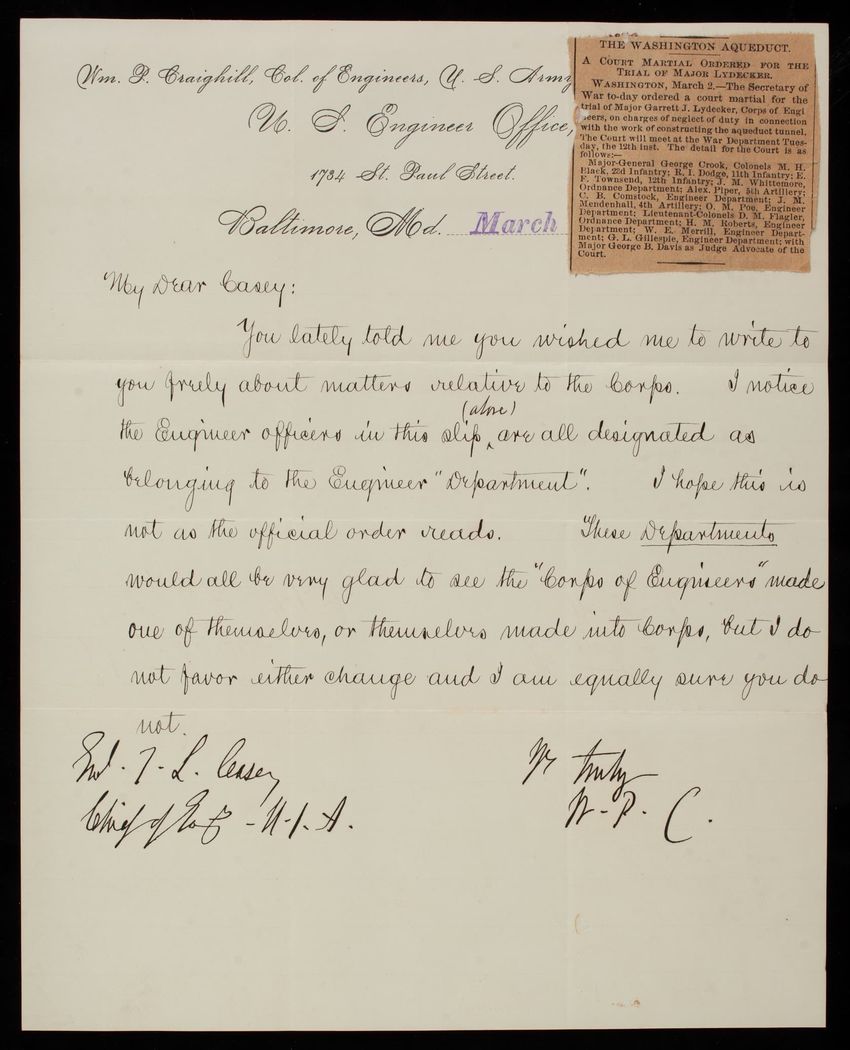 Wm. P. Craighill, Col. of Engineers, U. S. Army
U. S. Engineer Office,
1734 St. Paul Street.
Baltimore, Md. March
THE WASHINGTON AQUEDUCT.
A COURT MARTIAL ORDERED FOR THE
TRIAL OF MAJOR LYDECKER.
WASHINGTON, March 2.—The Secretary of
War to-day ordered a court martial for the
trial of Major Garrett J. Lydecker, Corps of Engi
neers, on charges of neglect of duty in connection
with the work of constructing the aqueduct tunnel.
The Court will meet at the War Department Tues-
day, the 12th inst. The detail for the Court is as
follows:—
Major-General George Crook, Colonels M. H.
Black, 23d Infantry; R. I. Dodge, 11th Infantry; E.
F. Townsend, 12th Infantry; J. M. Whittemore,
Ordnance Department; Alex. Piper, 5th Artillery;
C. B. Comstock, Engineer Department; J. M.
Mendenhall, 4th Artillery; O. M. Poe, Engineer
Department; Lieutenant-Colonels D. M. Flagler,
Ordnance Department; H. M. Roberts, Engineer
Department; W. E. Merrill, Engineer Depart-
ment; G. L. Gillespie, Engineer Department; with
Major George B. Davis as Judge Advocate of the
Court.
My Dear Casey:
You lately told me you wished me to write to
you freely about matters relative to the Corps. I notice
(above)
the Engineer officers in this slip ‸ are all designated as
belonging to the Engineer "Department". I hope this is
not as the official order reads. These Departments
would all be very glad to see the "Corps of Engineers" made
one of themselves, or themselves made into Corps, but I do
not favor either change and I am equally sure you do
not.
Yr truly
W. P. C.
Genl. T. L. Casey
Chief of Eng - U. S. A.